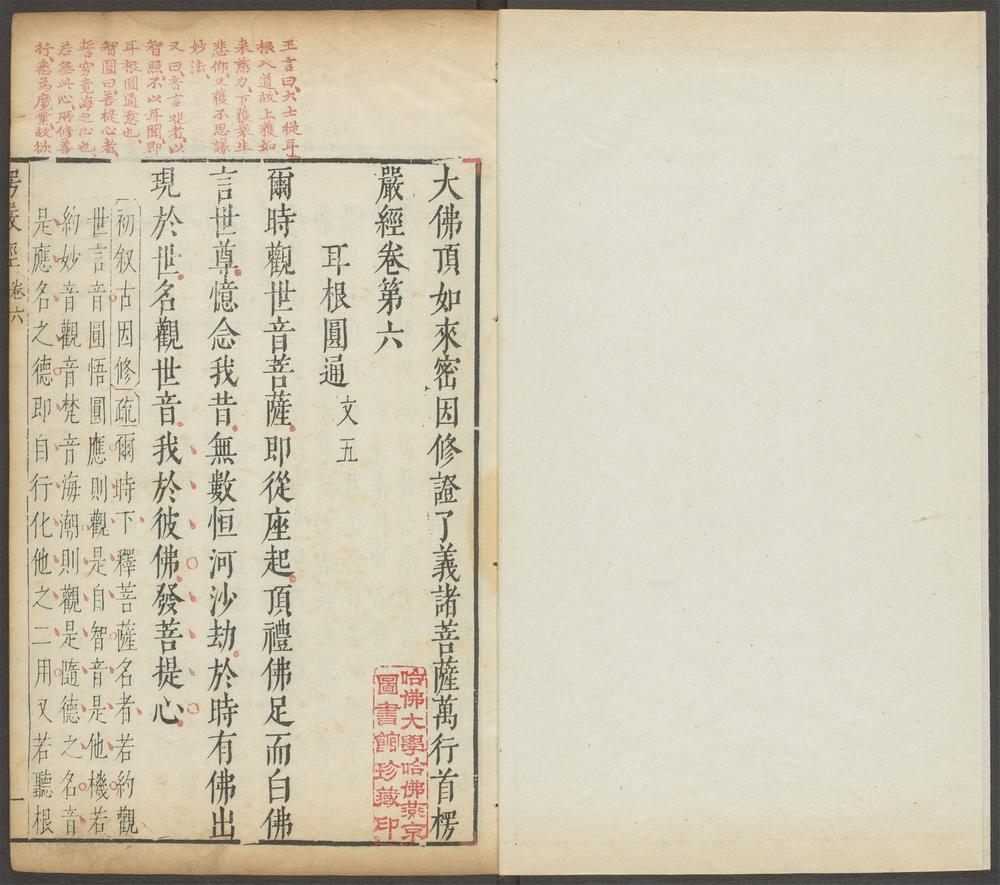 王言曰大士從耳
根入道故上獲如
來慈力下獲衆生
悲仰又獲不思議
妙法
又曰音言观者以
智照不以耳聞即
耳根圓通意也
智圓曰菩提心者
誓窮竟海之心也
若無此心所修善
行悉爲魔業故欲
大佛頂如來密因修證了義諸菩薩萬行首楞
嚴經卷第六
耳根圓通文五
爾時觀世音菩薩即從座起頂禮佛足而白佛
言世尊憶念我昔無數恒河沙劫於時有佛出
現於世名觀世音我於彼佛發菩提心
初叙古因修疏爾時下釋菩薩名者若約觀
世言音圓悟圓應則觀是自智音是他機若
約妙音觀音梵音海潮則觀是隨德之名音
是應名之德即自行化他之二用又若聽根
楞嚴經 卷六 一
哈佛大學哈佛燕京
圖書館珍藏印